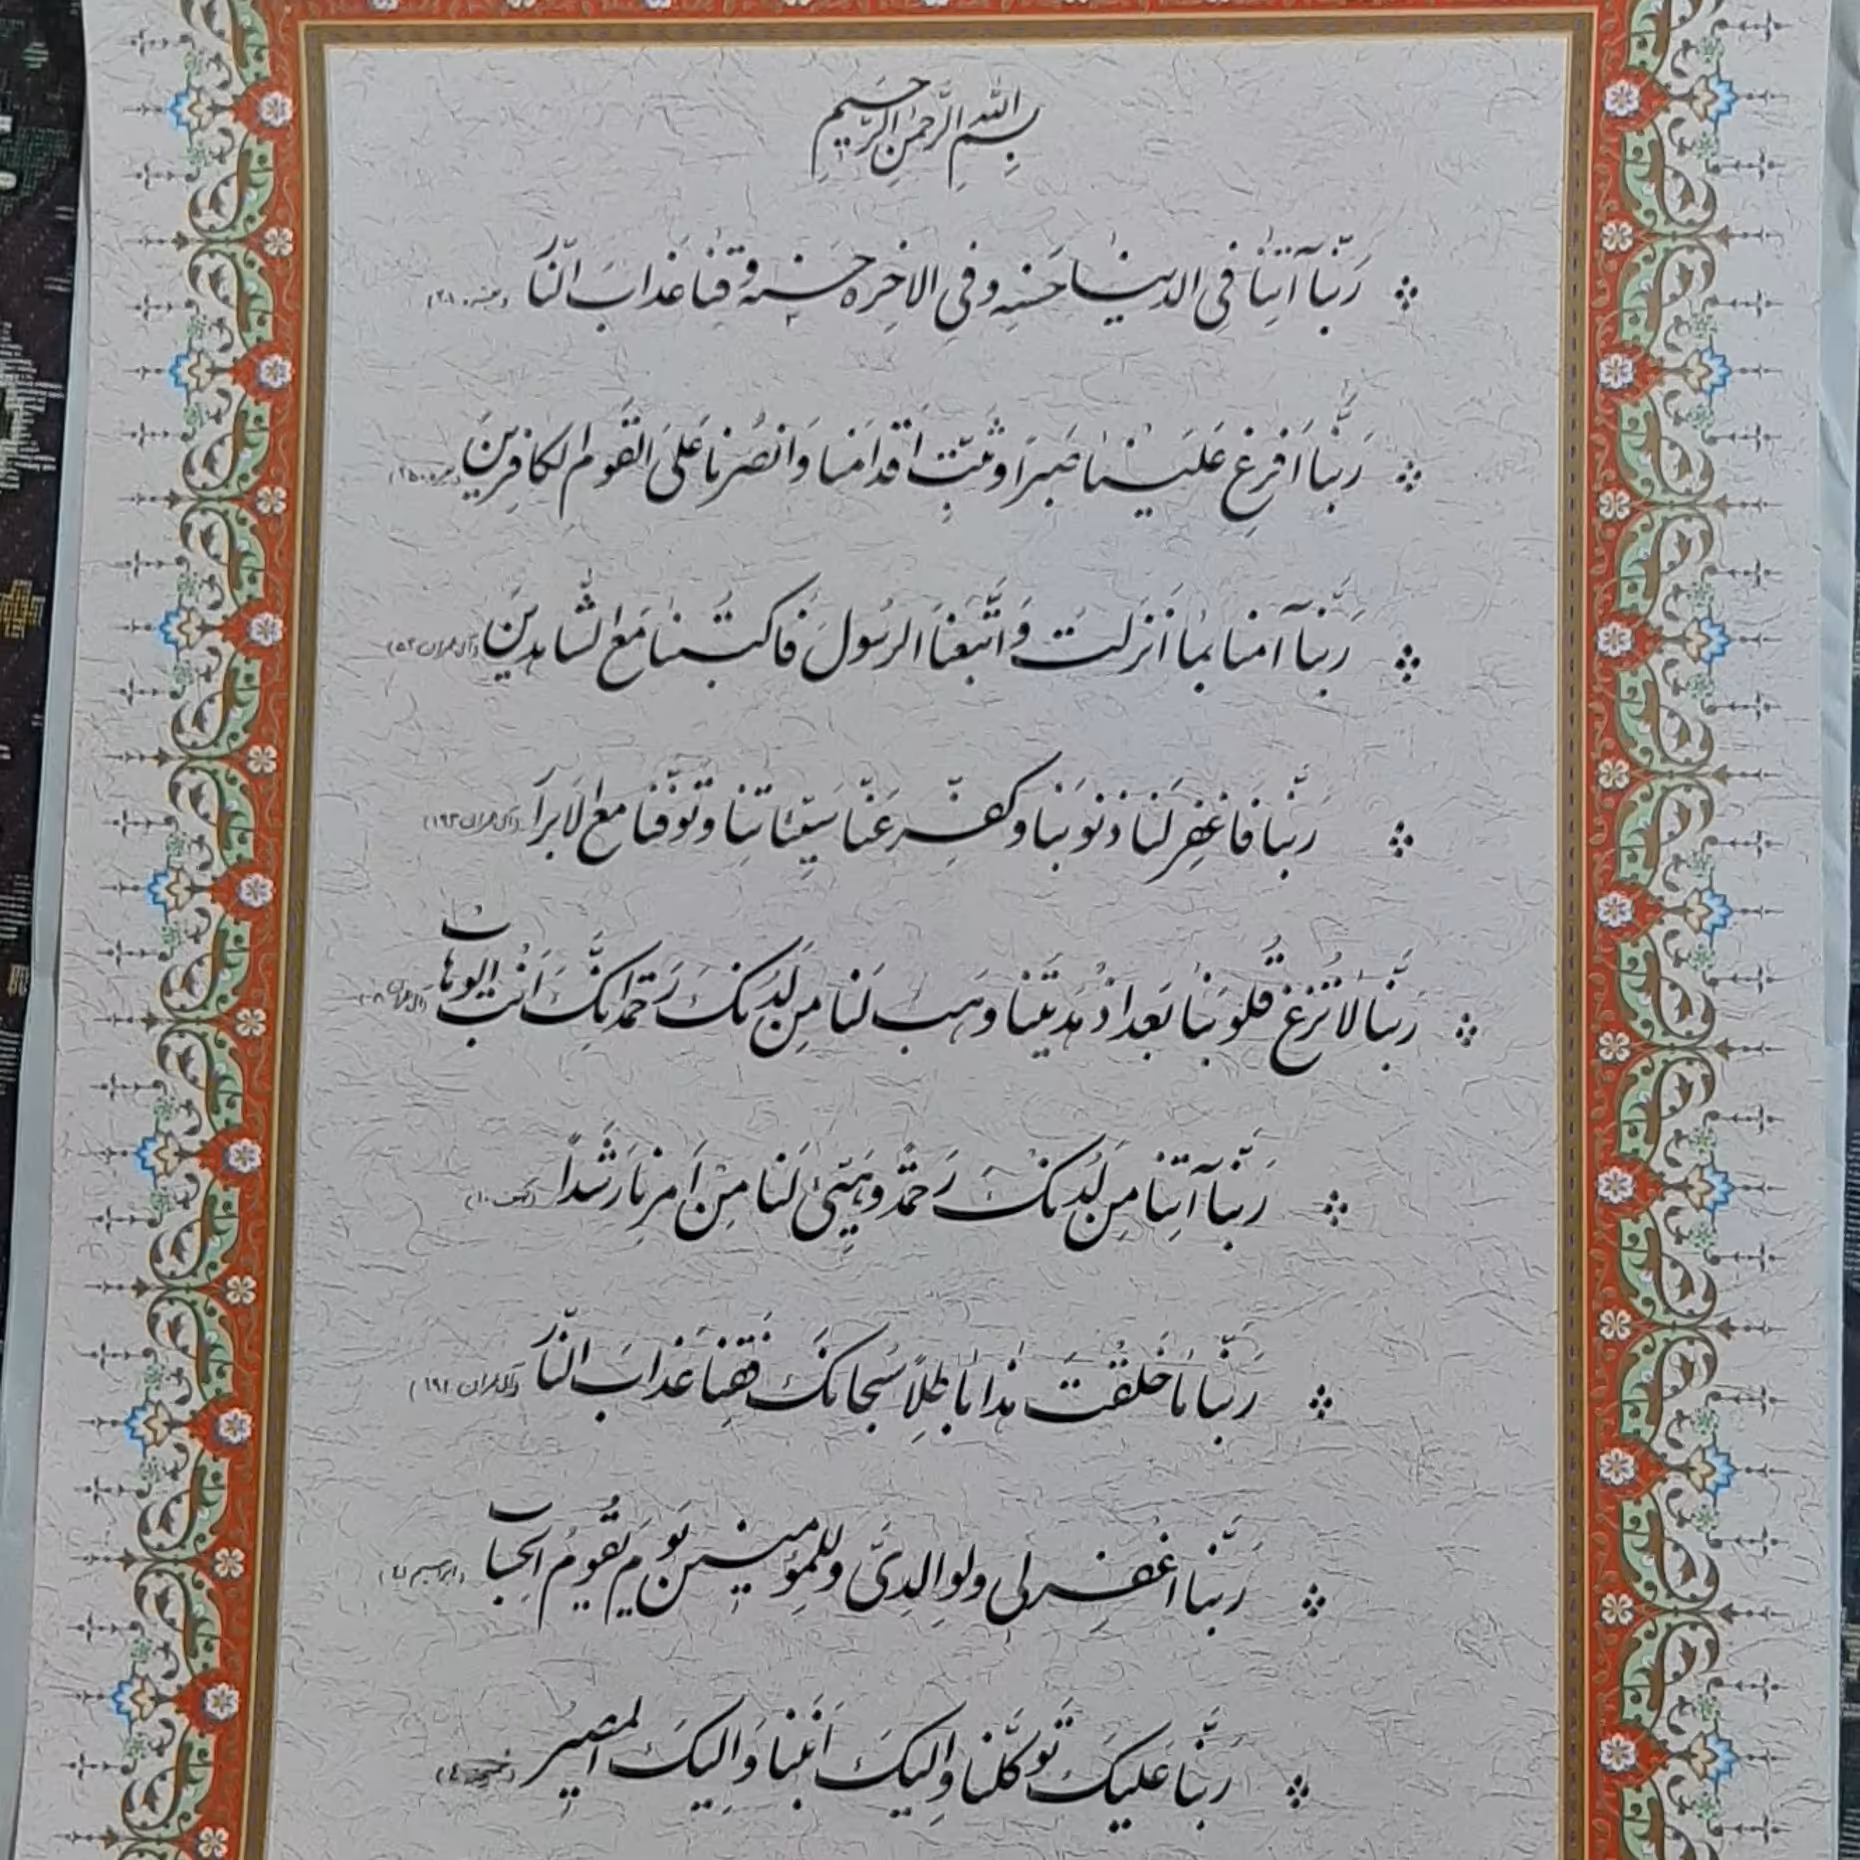 بِسْمِ اللهِ الرَّحْمٰنِ الرَّحِيمِ
رَبَّنا آتِنا فِي الدنيا حَسَنه وَفي الاخِرَه حَسَنه وَقِنا عَذابَ النّار
رَبَّنا اَفرِغ عَلَینا صَبرًا وَثَبِّت اَقدامَنا وَانصُرنا عَلَی القَومِ الکافِرینَ (بقره ۲۵۰)
رَبَّنا آمنا بما اَنزَلتَ وَاتَّبَعنَا الرسُولَ فَاکتُبنا مَعَ الشاهِدینَ (آل عمران ۵۳)
رَبَّنا فَاغفِر لَنا ذنوبَنا وکَفِّر عَنّا سَیِّئاتِنا وَتَوَفَّنا مع الابرار (آل عمران ۱۹۳)
رَبَّنا لا تُزغ قُلوبَنا بَعدَ اذ هَدَیتَنا وهَب لَنا مِن لَدُنکَ رَحمة اِنَّکَ اَنتَ الوهاب (آل عمران ۰۸)
رَبَّنا آتِنا مِن لَدُنکَ رَحمَةً وهَیِّئ لَنا مِن اَمرِنا رَشَدًا (کهف ۱۰)
رَبَّنا ما خَلَقتَ هٰذا باطِلًا سُبحانَکَ فَقِنا عَذابَ النّار (آل عمران ۱۹۱)
رَبَّنا اغفِر لی ولِوالِدَیَّ وللمُؤمِنینَ یَومَ یَقومُ الحِساب (ابراهیم ۴۱)
رَبَّنا عَلیکَ تَوَکَّلنا وَاِلیکَ اَنَبنا وَاِلیکَ المَصیر